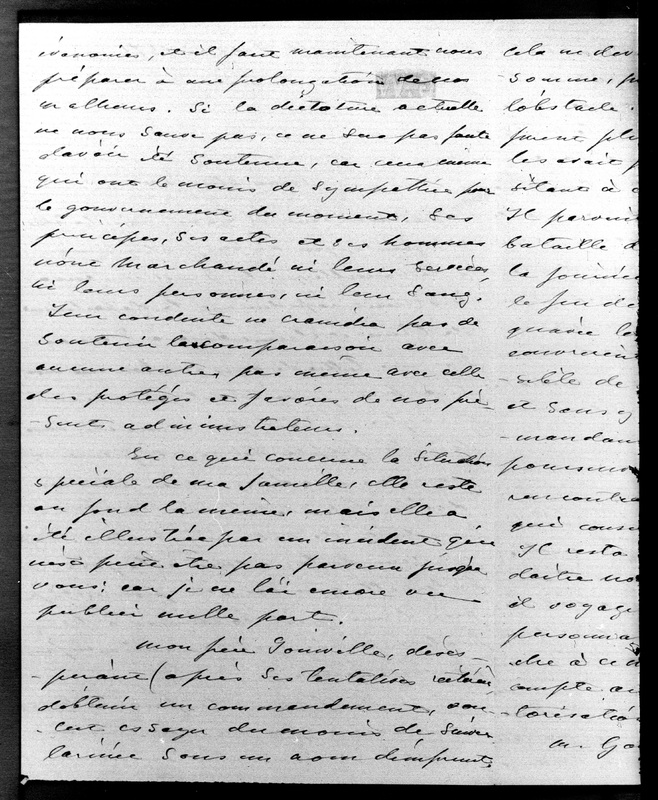 évanouies, et il faut maintenant nous
préparer à une prolongation de nos
malheurs. Si la dictature actuelle
ne nous sauve pas, ce ne sera pas faute
d'avoir été soutenue, car ceux même
qui ont le moins de sympathie pour
le gouvernement du moment, ses
principes, ses actes et ses hommes
n'ont marchandé ni leurs services,
ni leurs personnes, ni leur sang.
Leur conduite ne craindra pas de
soutenir la comparaison avec
aucune autre, pas même avec celle
des protégés et favoris de nos pré
-sents administrateurs.
En ce qui concerne la situation
spéciale de ma famille, elle reste
au fond la même, mais elle a
été illustrée par un incident qui
n'est peut être pas parvenu jusqu'à
vous: car je ne l'ai encore vu
publier nulle part.
Mon frère Joinville, déses-
-pérant (après ses tentatives
d'obtenir un commandement, vou
-lut essayer du moins de suivre
l'armée sous un nom d'emprunt.
cela ne dev
somme, p
l'obstacle.
purent plu
les avait p
sitant à c
Il parvint
bataille d
la journée
le feu de
quasie le
couvraient
-sible de
et sous
-mandan
poursuiv
rencontra
qui cons
Il resta
daitre no
il voyage
personna
-dre à ce
compte au
-torisation
M. Ga